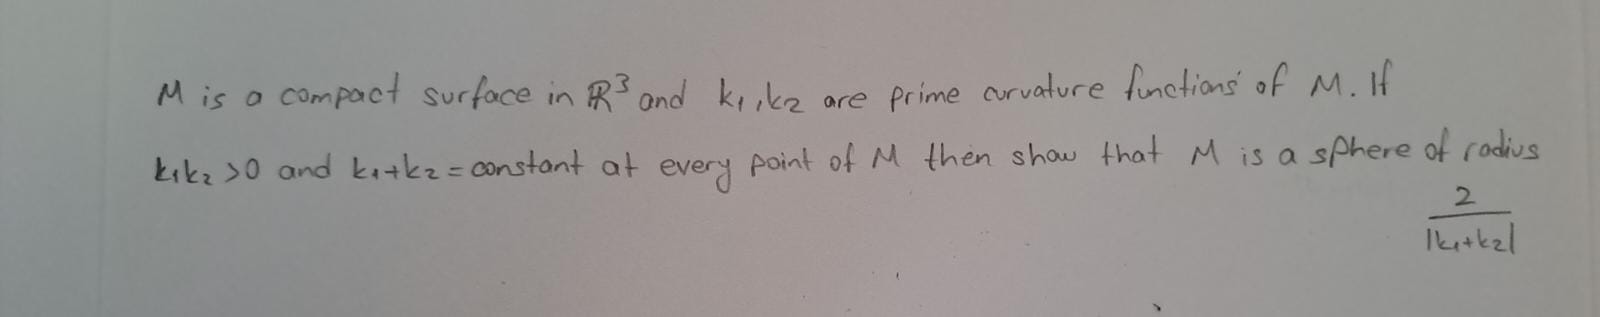 M is a compact surface in ℝ³ and k₁,k₂ are prime curvature functions of M. If
k₁k₂ >0 and k₁+k₂ = constant at every point of M then show that M is a sphere of radius
2
|k₁+k₂|